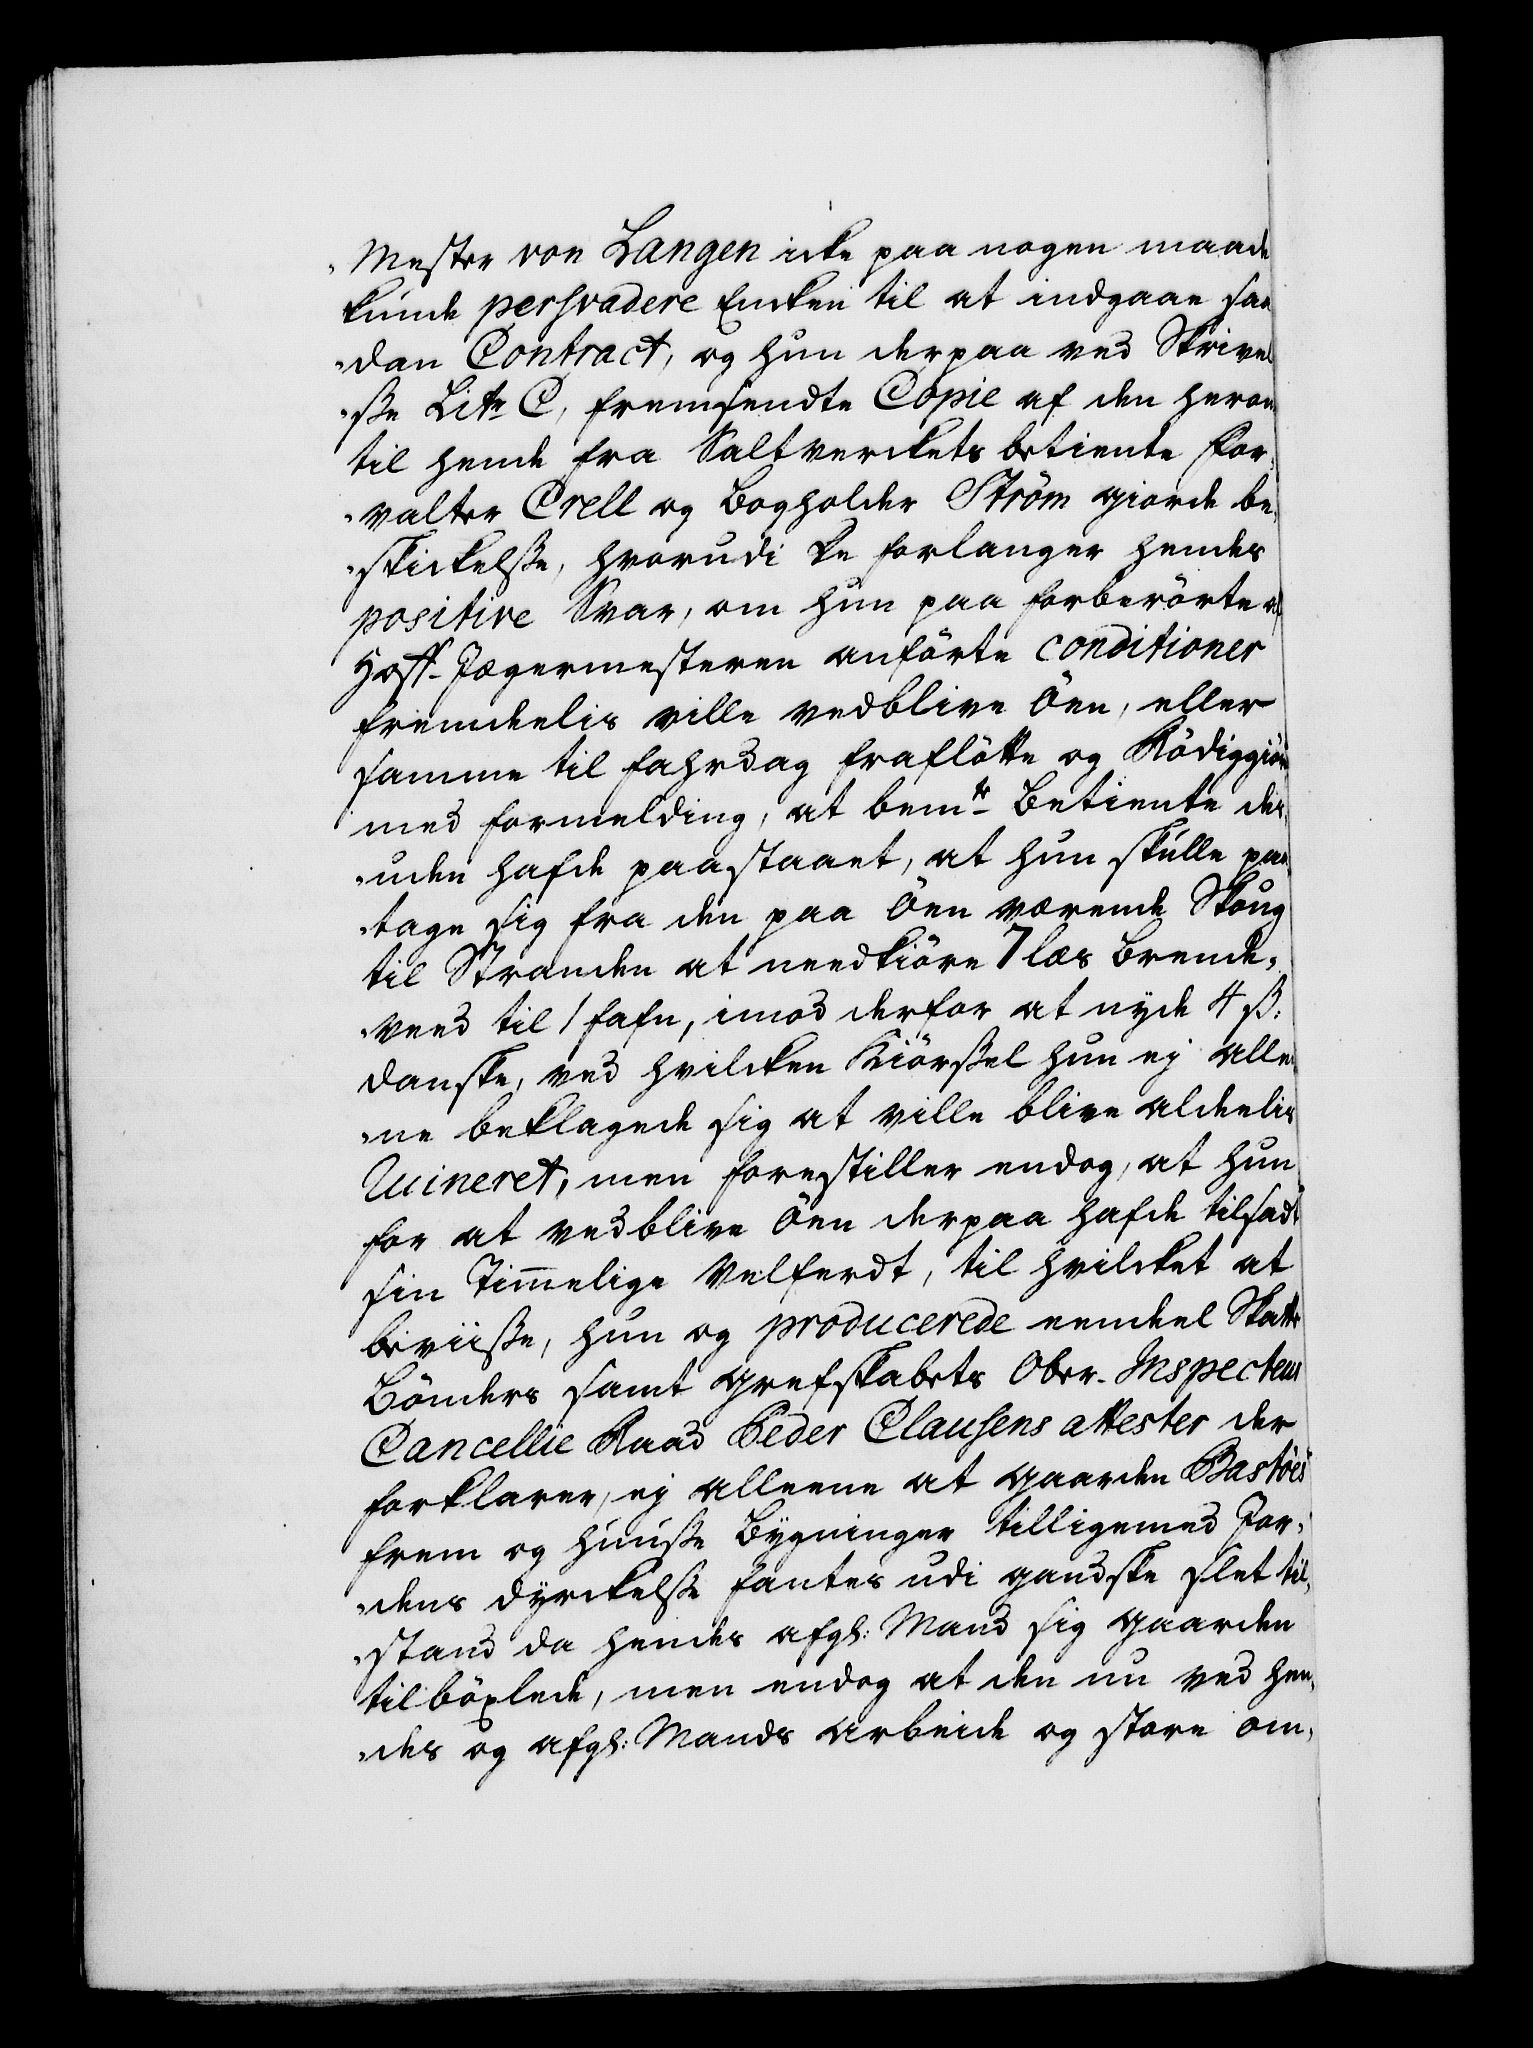 „Mester von Langen icke paa nogen maade
kunde persvadere Encken til at indgaae saa
„dan Contract, og hun derpaa ved Skrivel
„ße Litr C, fremsendte Copie af den herom
til hende fra Saltverckets betiente For„
„valter Crell og Bogholder Ström giorde be„
„skickelße, hvorudi de forlanger hendes
positive Svar, om hun paa forberörte af
Hoff-Jægermesteren anförte conditioner
fremdeelis ville vedblive Öen, eller
samme til Fahrdag fraflötte og Rödiggiöre
med formelding, at bemte Betiente der„
„uden hafde paastaaet, at hun skulle paa
„tage sig fra den paa Öen værende Skoug
til Stranden at needkiöre 7 læs Brende„
„veed til 1 fafn, imod derfor at nyde 4 ß:
danske, ved hvilcken Kiörßel hun ej allee
„ne beklagede sig at ville blive aldeelis
Ruineret, men forestiller endog, at hun
for at vedblive Öen derpaa hafde tilsadt
sin Timmelige Velferdt, til hvilcket at
beviiße, hun og producerede eendeel Skatte
Bönders samt Grefskabets Ober-Inspecteur
Cancellie Raad Peder Clausens attester der
forklarer, ej alleene at gaarden Bastöes
frem og huuße Bygninger tilligemed Jor„
„dens dyrckelße fantes udi gandske slet til„
„stand da hendes afgl: Mand sig gaarden
tilböxlede, men endog at den nu ved hen„
„des og afgl: Mands Arbeide og store om„